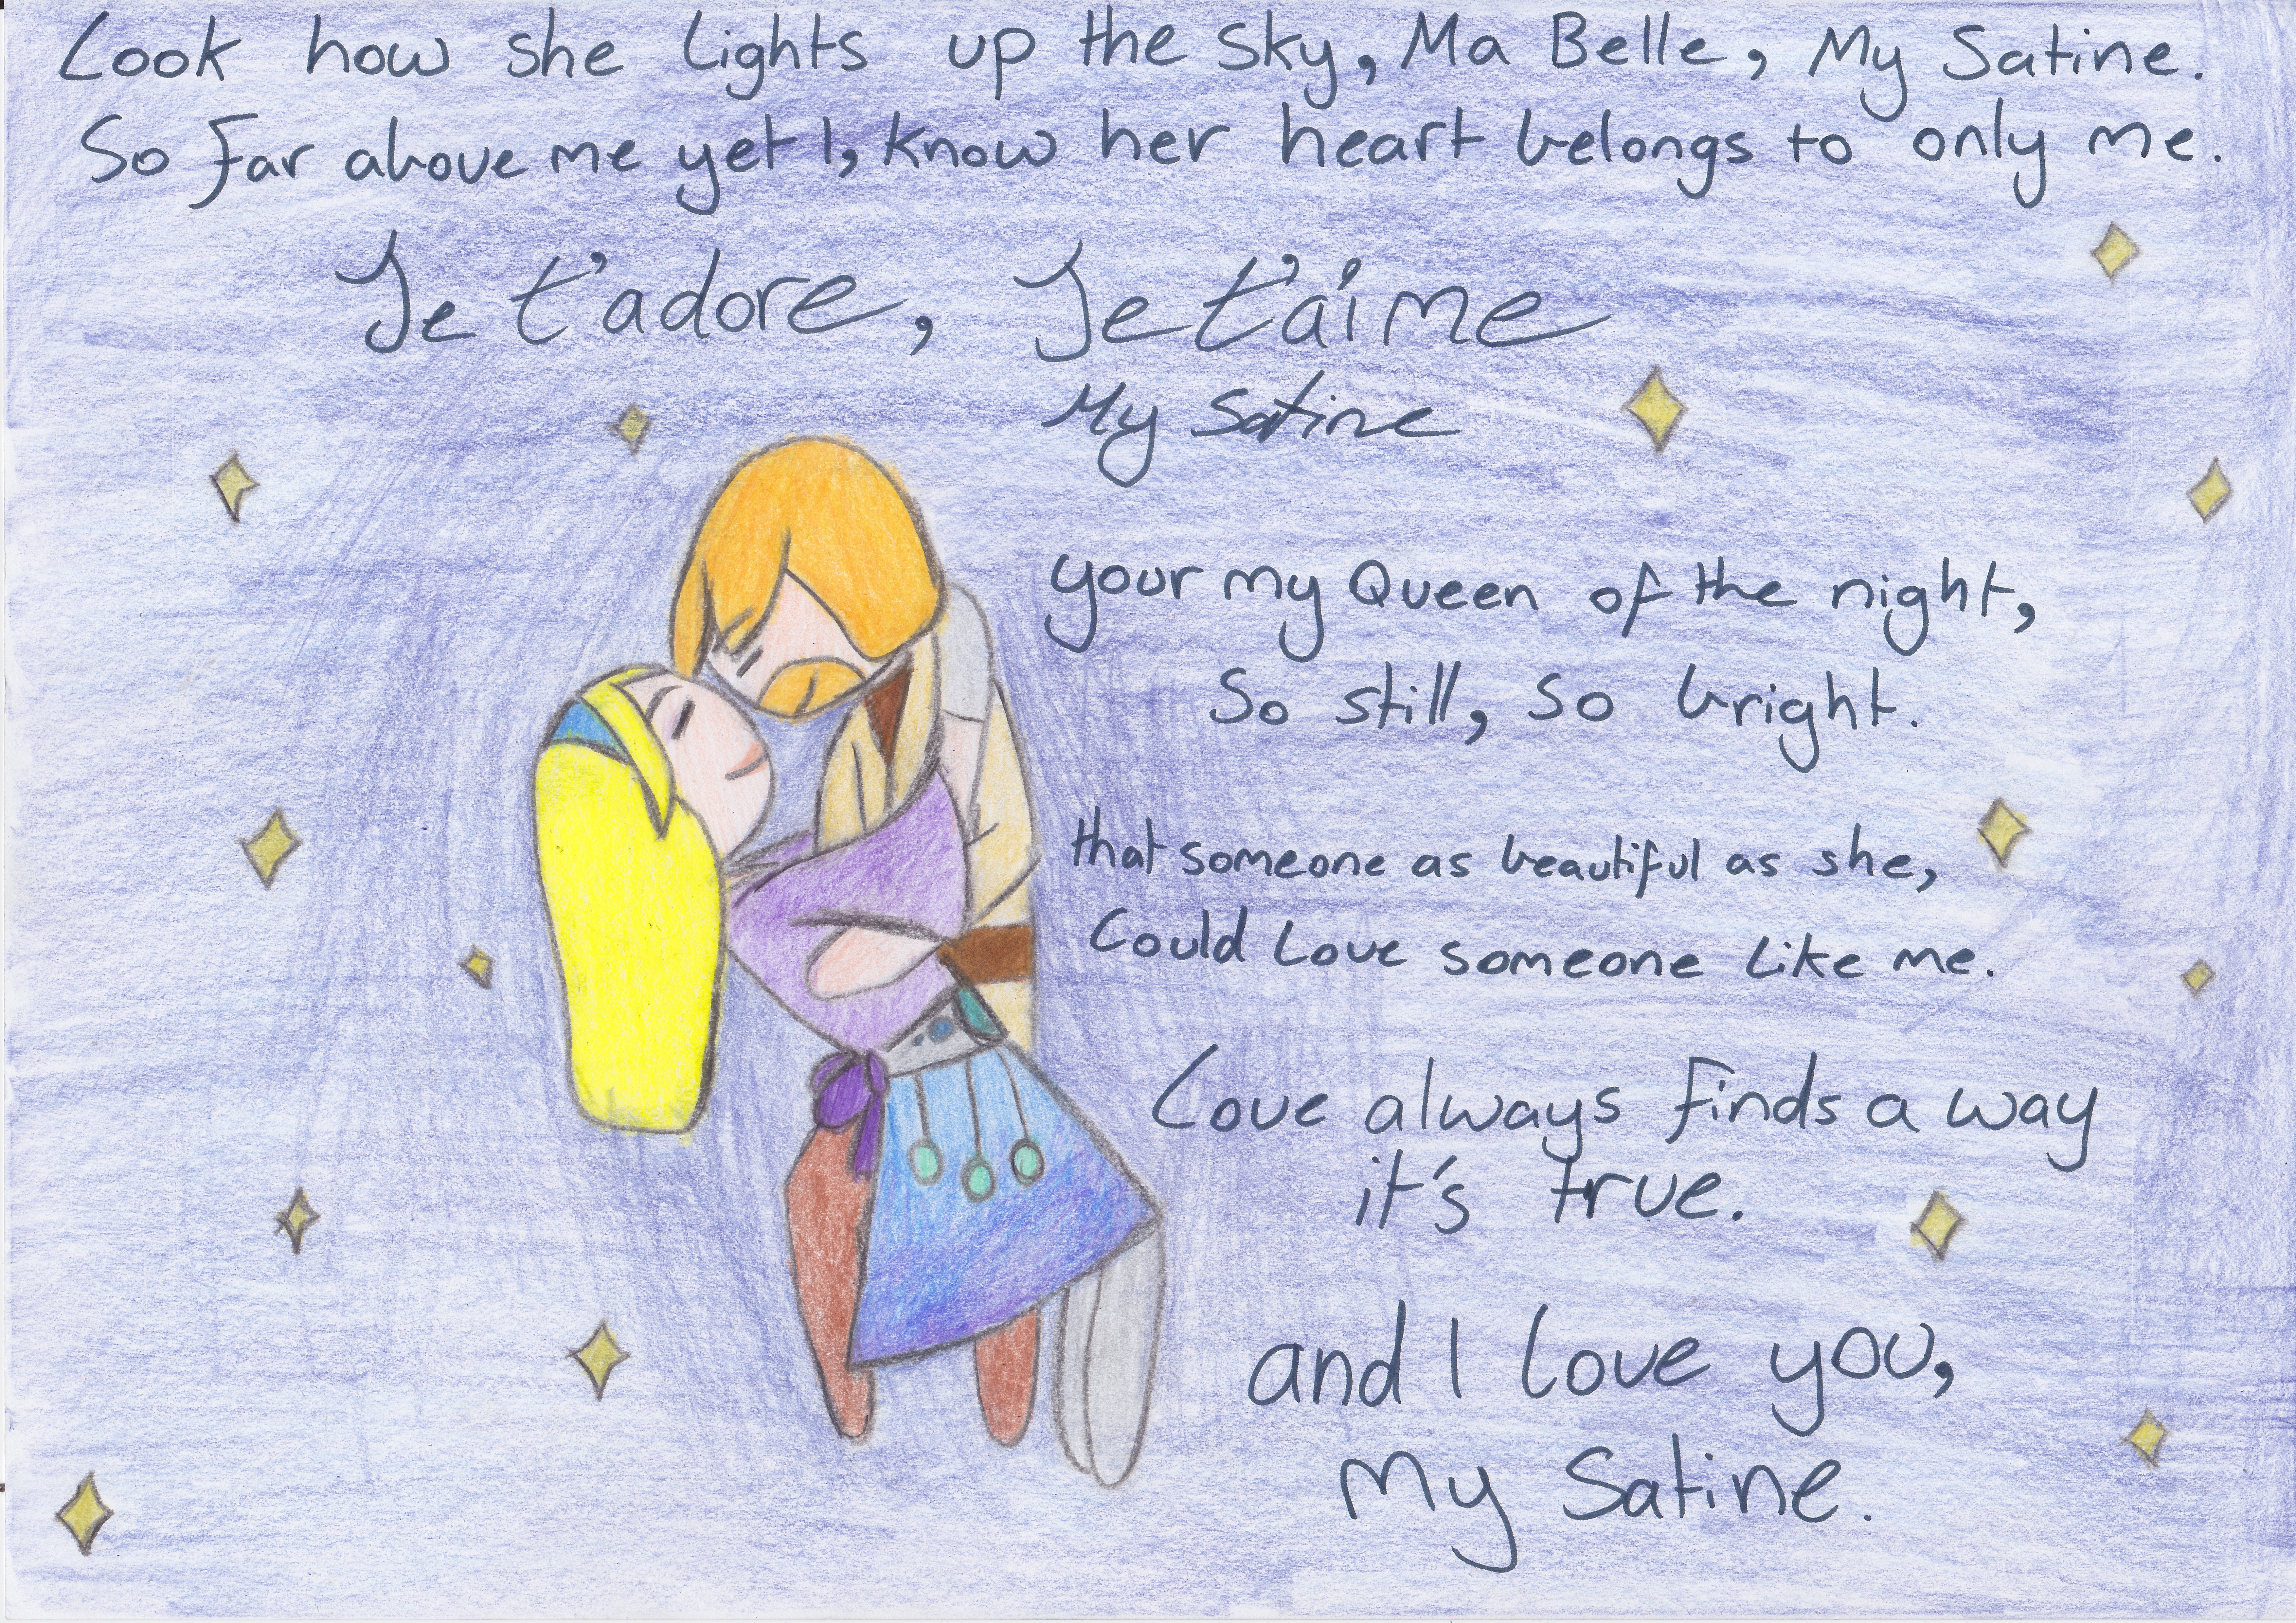 Look how she lights up the sky, Ma Belle, My Satine.
So far above me yet I, know her heart belongs to only me.
Je t'adore, Je t'aime
My Satine
your my Queen of the night,
So still, so bright.
that someone as beautiful as she,
Could Love someone like me.
Love always finds a way
it's true.
and I love you,
My Satine.